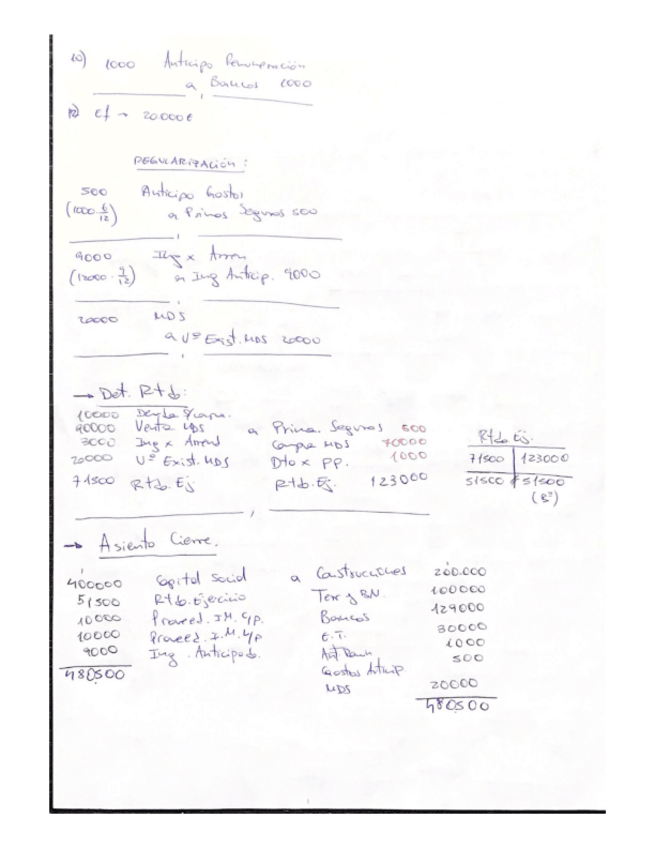 10) 1000 Anticipo Remuneración
a Bancos 1000
12) Ef → 20.000€
REGULARIZACIÓN:
500 Anticipo Gastos
(1000·6/12) a Primas Seguros 500
9000 Ing x Arren
(12000·9/12) a Ing Anticip. 9000
20000 MDS
a Vº Exist. MDS 20000
→ Det. Rtdo:
10000
90000 Venta MDS a Prima Seguros 500
3000 Ing x Arrend Compra MDS 70000
20000 Vº Exist. MDS Dto x PP. 1000
71500 Rtdo. Ej Rtdo. Ej. 123000
Rtdo Ej.
71500 123000
51500 51500
(Bº)
→ Asiento Cierre.
400000 Capital Social a Construcciones 200.000
51500 Rtdo. Ejercicio Terr y B.N. 100000
10000 Proveed. I.M. C/P. Bancos 129000
10000 Proveed. I.M. L/P E.T. 30000
9000 Ing. Anticipado. Ant Rem 1000
480500 Gastos Anticip 500
MDS 20000
480500